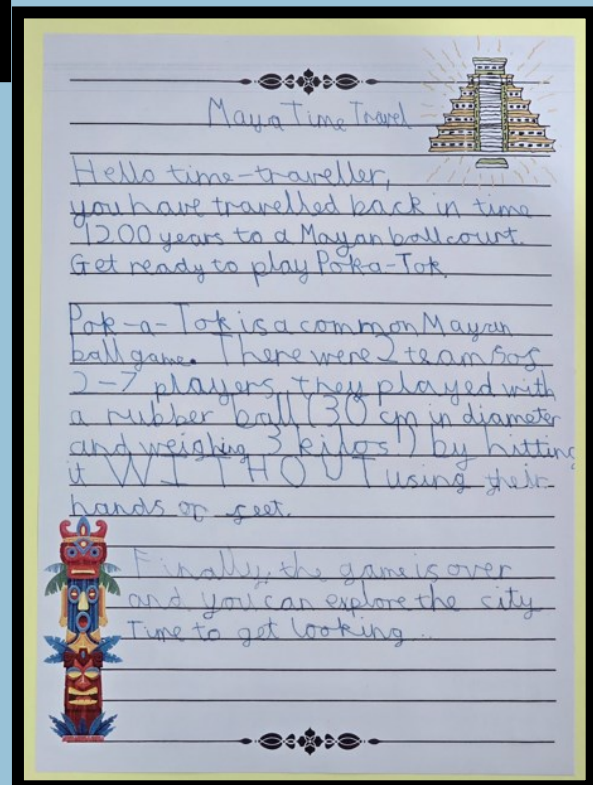 Maya Time Travel
Hello time-traveller,
you have travelled back in time
1200 years to a Mayan ballcourt.
Get ready to play Pok-a-Tok.
Pok-a-Tok is a common Mayan
ball game. There were 2 teams of
2-7 players, they played with
a rubber ball (30 cm in diameter
and weighing 3 kilos!) by hitting
it WITHOUT using their
hands or feet.
Finally, the game is over
and you can explore the city
Time to get looking...